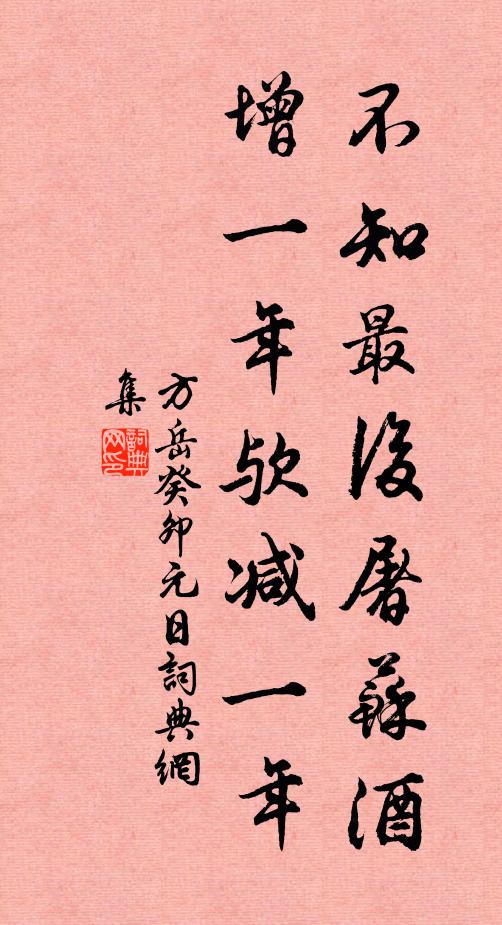 不知最後屠蘇酒
增一年欤减一年
方岳癸卯元日詞典網
集
詞典网印